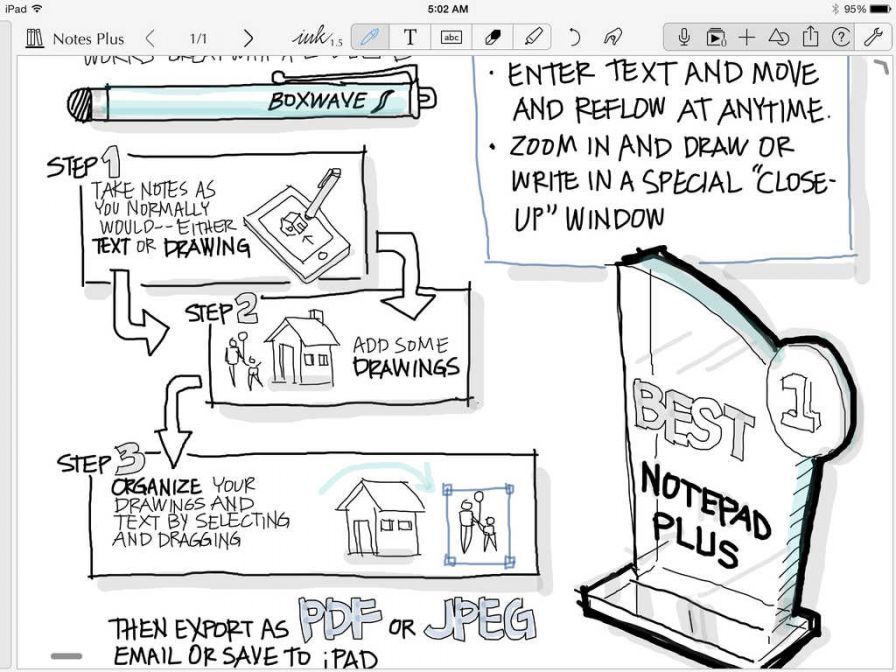 iPad
5:02 AM
95%
Notes Plus
1/1
ink 1.5
T
abc
WORKS GREAT WITH A
BOXWAVE
• ENTER TEXT AND MOVE
AND REFLOW AT ANYTIME.
• ZOOM IN AND DRAW OR
WRITE IN A SPECIAL "CLOSE-
UP" WINDOW
STEP 1
TAKE NOTES AS
YOU NORMALLY
WOULD--EITHER
TEXT OR DRAWING
STEP 2
ADD SOME
DRAWINGS
STEP 3
ORGANIZE YOUR
DRAWINGS AND
TEXT BY SELECTING
AND DRAGGING
THEN EXPORT AS PDF OR JPEG
EMAIL OR SAVE TO iPAD
1
BEST
NOTEPAD
PLUS